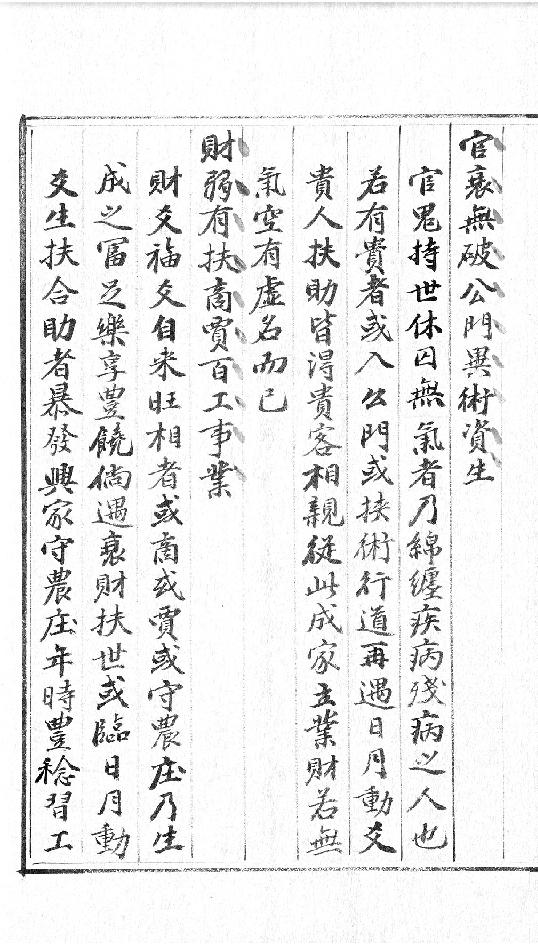 官衰無破公門異術資生
官鬼持世休囚無氣者乃綿纏疾病殘病之人也
若有貴者或入公門或挾術行道再遇日月動爻
貴人扶助皆得貴客相親從此成家立業財若無
氣空有虛名而已
財弱有扶商賈百工事業
財爻福爻自來旺相者或商或賈或守農庄乃生
成之富足樂享豊饒倘遇衰財扶世或臨日月動
爻生扶合助者暴發興家守農庄年時豊稔習工